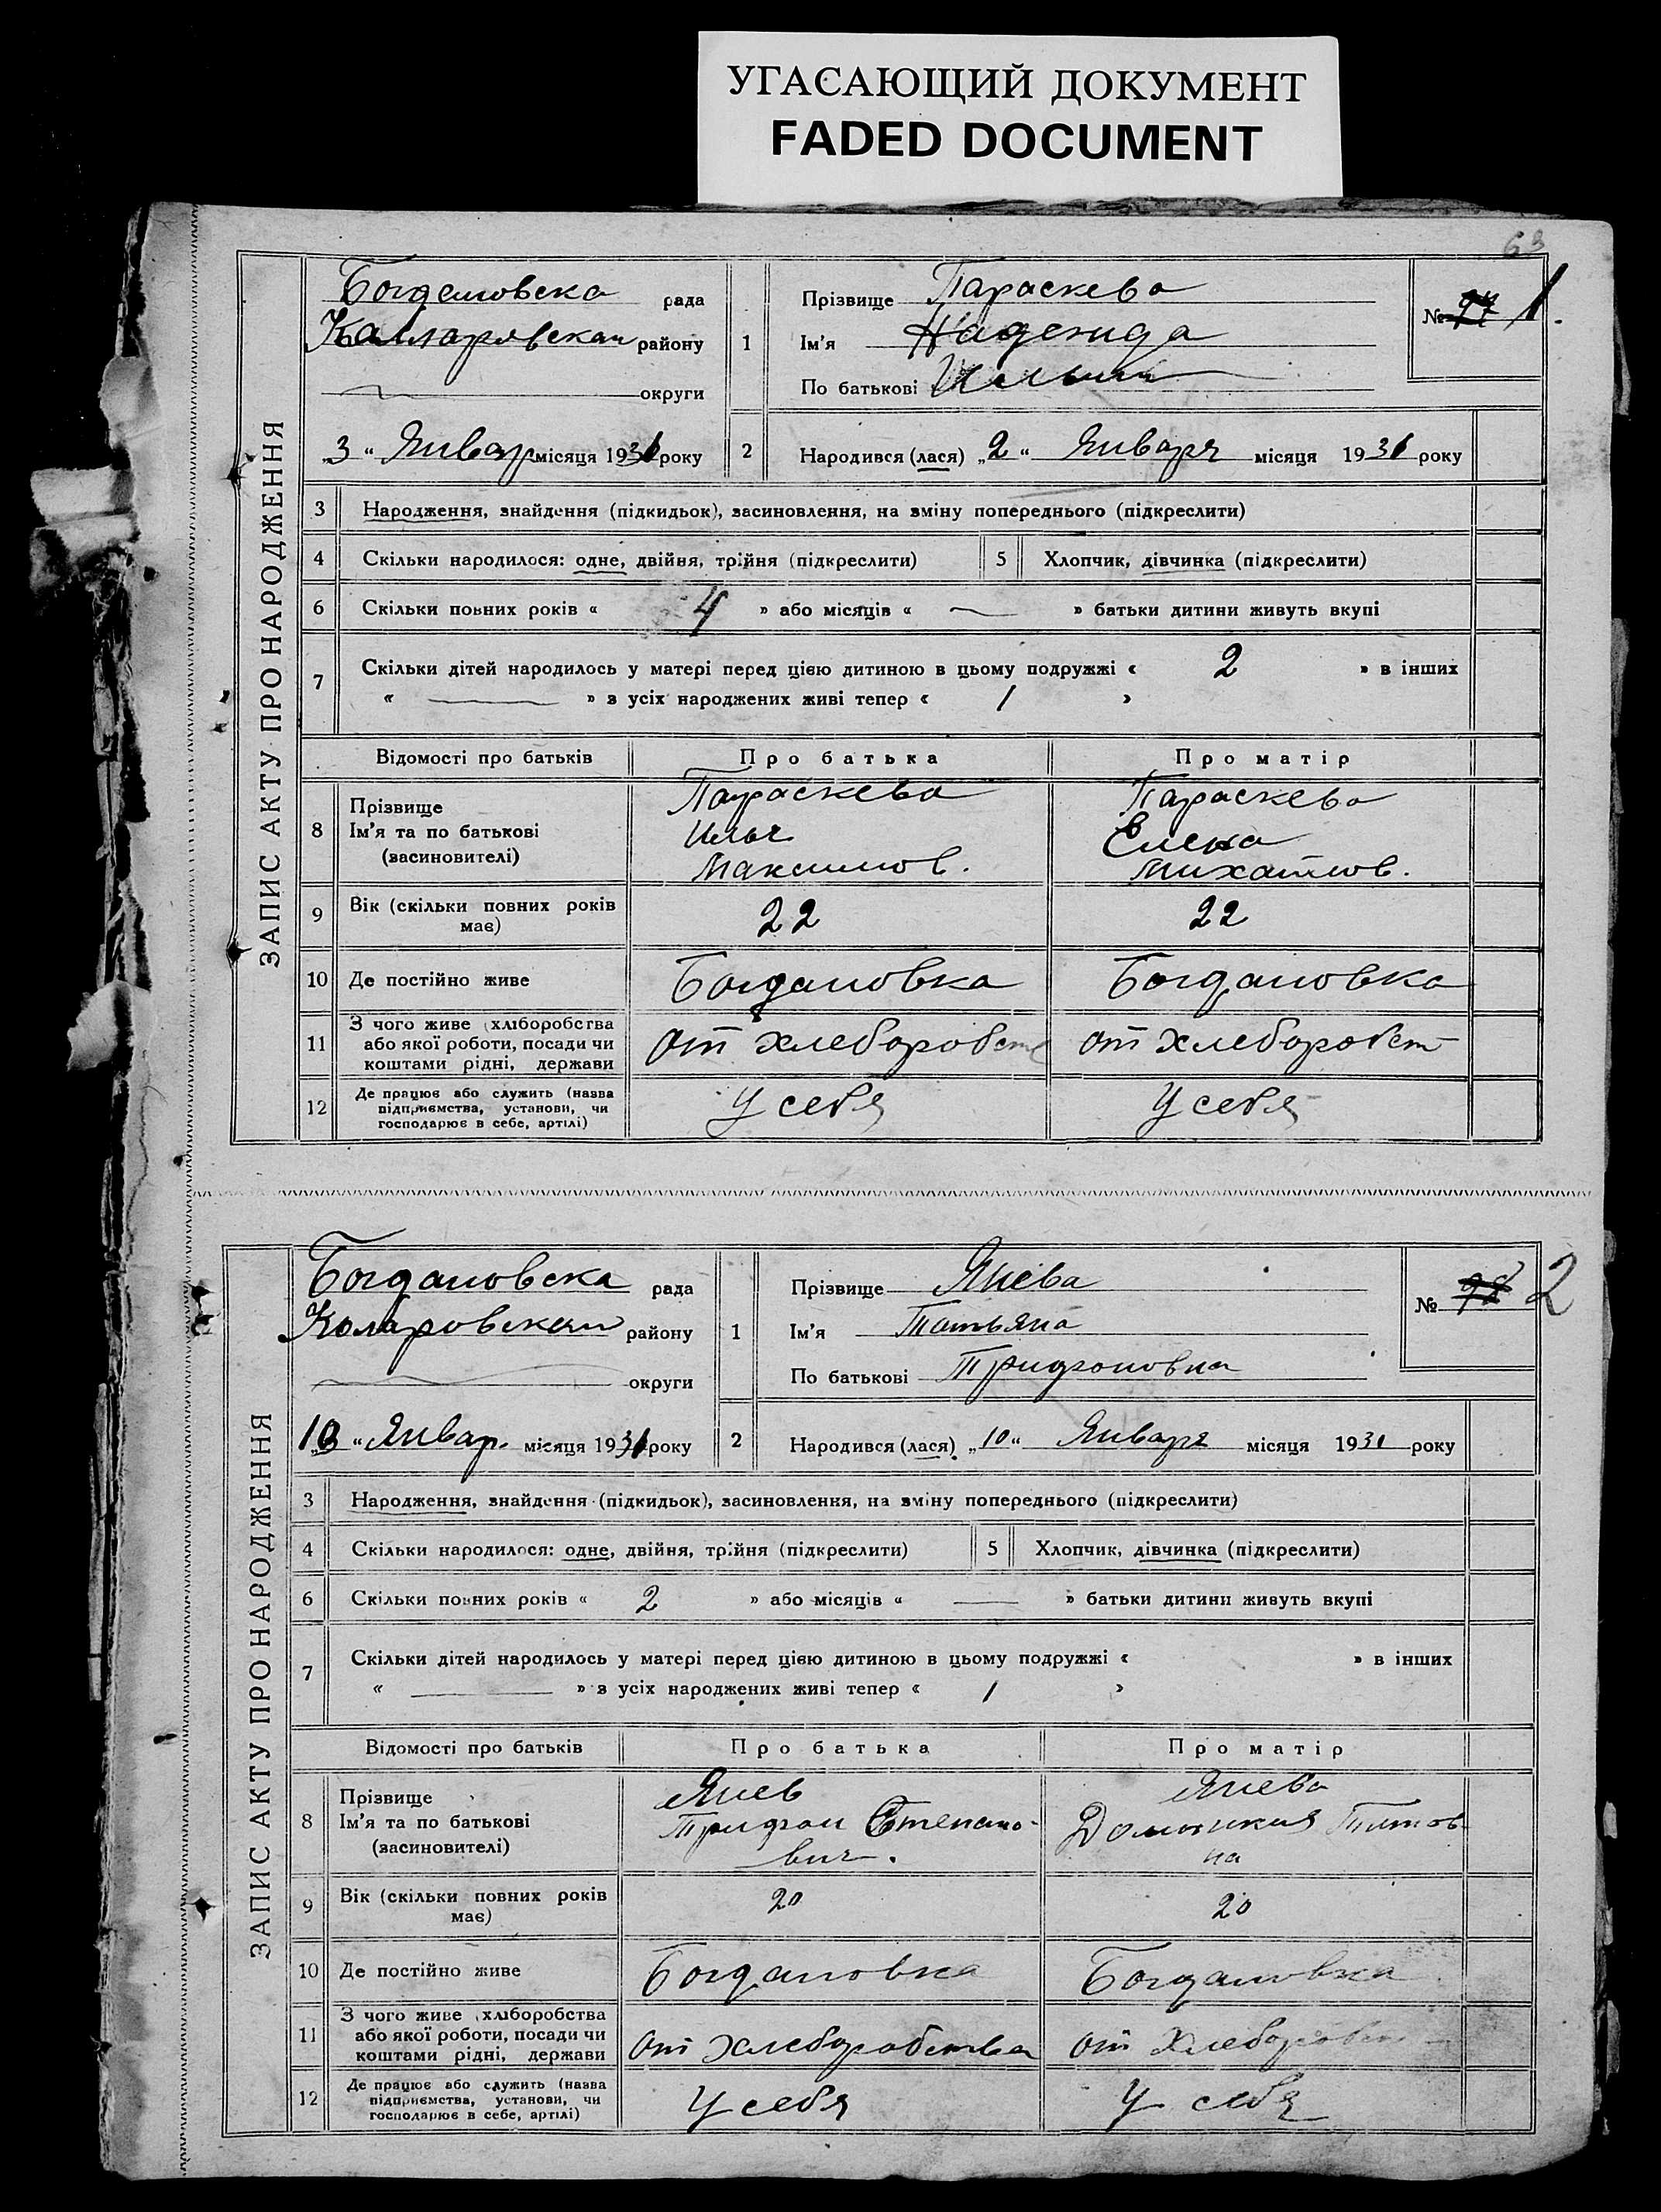 УГАСАЮЩИЙ ДОКУМЕНТ
FADED DOCUMENT
63
ЗАПИС АКТУ ПРО НАРОДЖЕННЯ
Богдановска рада
Колларовскаи району
округи
„3“ Январ місяця 1931 року
1
Прізвище Параскева
Ім'я Надежида
По батькові
№ 1.
2 Народився (лася) „2“ Января місяця 1931 року
3 Народження, знайдення (підкидьок), засиновлення, на зміну попереднього (підкреслити)
4 Скільки народилося: одне, двійня, трійня (підкреслити) 5 Хлопчик, дівчинка (підкреслити)
6 Скільки повних років « 4 » або місяців « — » батьки дитини живуть вкупі
7 Скільки дітей народилось у матері перед цією дитиною в цьому подружжі « 2 » в інших
« — » з усіх народжених живі тепер « 1 »
Відомості про батьків Про батька Про матір
8 Прізвище Ім'я та по батькові (засиновителі)
Параскева Илья Максимов.
Параскева Елена Михайлов.
9 Вік (скільки повних років має) 22 22
10 Де постійно живе Богдановка Богдановка
11 З чого живе (хліборобства або якої роботи, посади чи коштами рідні, держави от хлеборобст от хлеборобст
12 Де працює або служить (назва підприємства, установи, чи господарює в себе, артілі) У себя У себя
ЗАПИС АКТУ ПРО НАРОДЖЕННЯ
Богдановска рада
Коларовскаи району
округи
„10“ Январ. місяця 1931 року
1
Прізвище Янева
Ім'я Татьяна
По батькові Трифоновна
№ 98 2
2 Народився (лася) „10“ Января місяця 1931 року
3 Народження, знайдення (підкидьок), засиновлення, на зміну попереднього (підкреслити)
4 Скільки народилося: одне, двійня, трійня (підкреслити) 5 Хлопчик, дівчинка (підкреслити)
6 Скільки повних років « 2 » або місяців « — » батьки дитини живуть вкупі
7 Скільки дітей народилось у матері перед цією дитиною в цьому подружжі « » в інших
« — » з усіх народжених живі тепер « 1 »
Відомості про батьків Про батька Про матір
8 Прізвище Ім'я та по батькові (засиновителі)
Янев Трифон Степанович.
Янева Домникия Титовна
9 Вік (скільки повних років має) 20 20
10 Де постійно живе Богдановка Богдановка
11 З чого живе (хліборобства або якої роботи, посади чи коштами рідні, держави от хлеборобства от хлеборобст
12 Де працює або служить (назва підприємства, установи, чи господарює в себе, артілі) У себя У себя